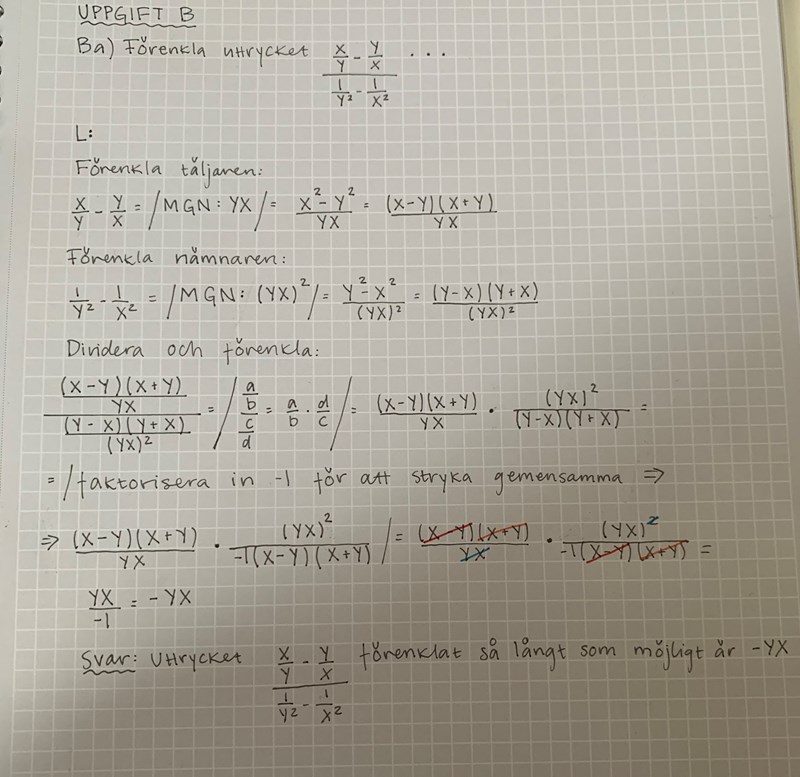 UPPGIFT B
Ba) Förenkla uttrycket (X/Y - Y/X)/(1/Y² - 1/X²) ...
L:
Förenkla täljaren:
X/Y - Y/X = /MGN: YX/ = (X² - Y²)/YX = (X-Y)(X+Y)/YX
Förenkla nämnaren:
1/Y² - 1/X² = /MGN: (YX)²/ = (Y² - X²)/(YX)² = (Y-X)(Y+X)/(YX)²
Dividera och förenkla:
((X-Y)(X+Y)/YX)/((Y-X)(Y+X)/(YX)²) = /(a/b)/(c/d) = a/b · d/c/ = (X-Y)(X+Y)/YX · (YX)²/(Y-X)(Y+X) =
= /faktorisera in -1 för att stryka gemensamma ⇒
⇒ (X-Y)(X+Y)/YX · (YX)²/-1(X-Y)(X+Y) / = (X-Y)(X+Y)/YX · (YX)²/-1(X-Y)(X+Y) =
YX/-1 = -YX
Svar: Uttrycket (X/Y - Y/X)/(1/Y² - 1/X²) förenklat så långt som möjligt är -YX